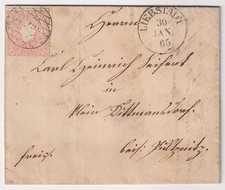 Herrn
LIEBSTADT
30
JAN.
65
Carl Heinrich Seifert
in
Klein Dittmansdorf.
freiz. bei: Pulsnitz.